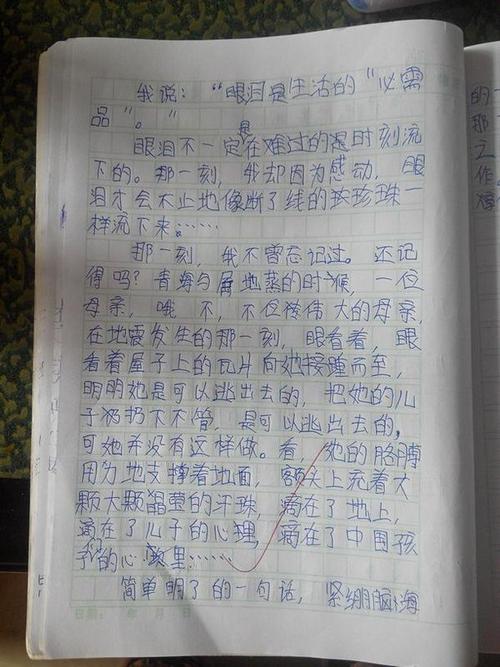 我说："眼泪是生活的"必需
品"。"
是
眼泪不一定在难过的是时刻流
下的。那一刻，我却因为感动，眼
泪才会不止地像断了线的珍珠一
样流下来……
那一刻，我不曾忘记过。还记
得吗？青海与 地 的时候，一位
母亲，哦 不，不位 伟大的母亲，
在地震发生的那一刻，眼看着，眼
看着屋子上的瓦片向她接踵而至，
明明她是可以逃出去的，把她的儿
子扔扔下不管，是可以逃出去的，
可她并没有这样做。看，她的胳膊
用力地支撑着地面，额头上充着大
颗大颗晶莹的汗珠，滴在了地上，
滴在了儿子的心理，滴在了中国孩
子的心 里……
简单明了的一句话，紧绷脑海
的
那
之
作
日期： 年 月 日